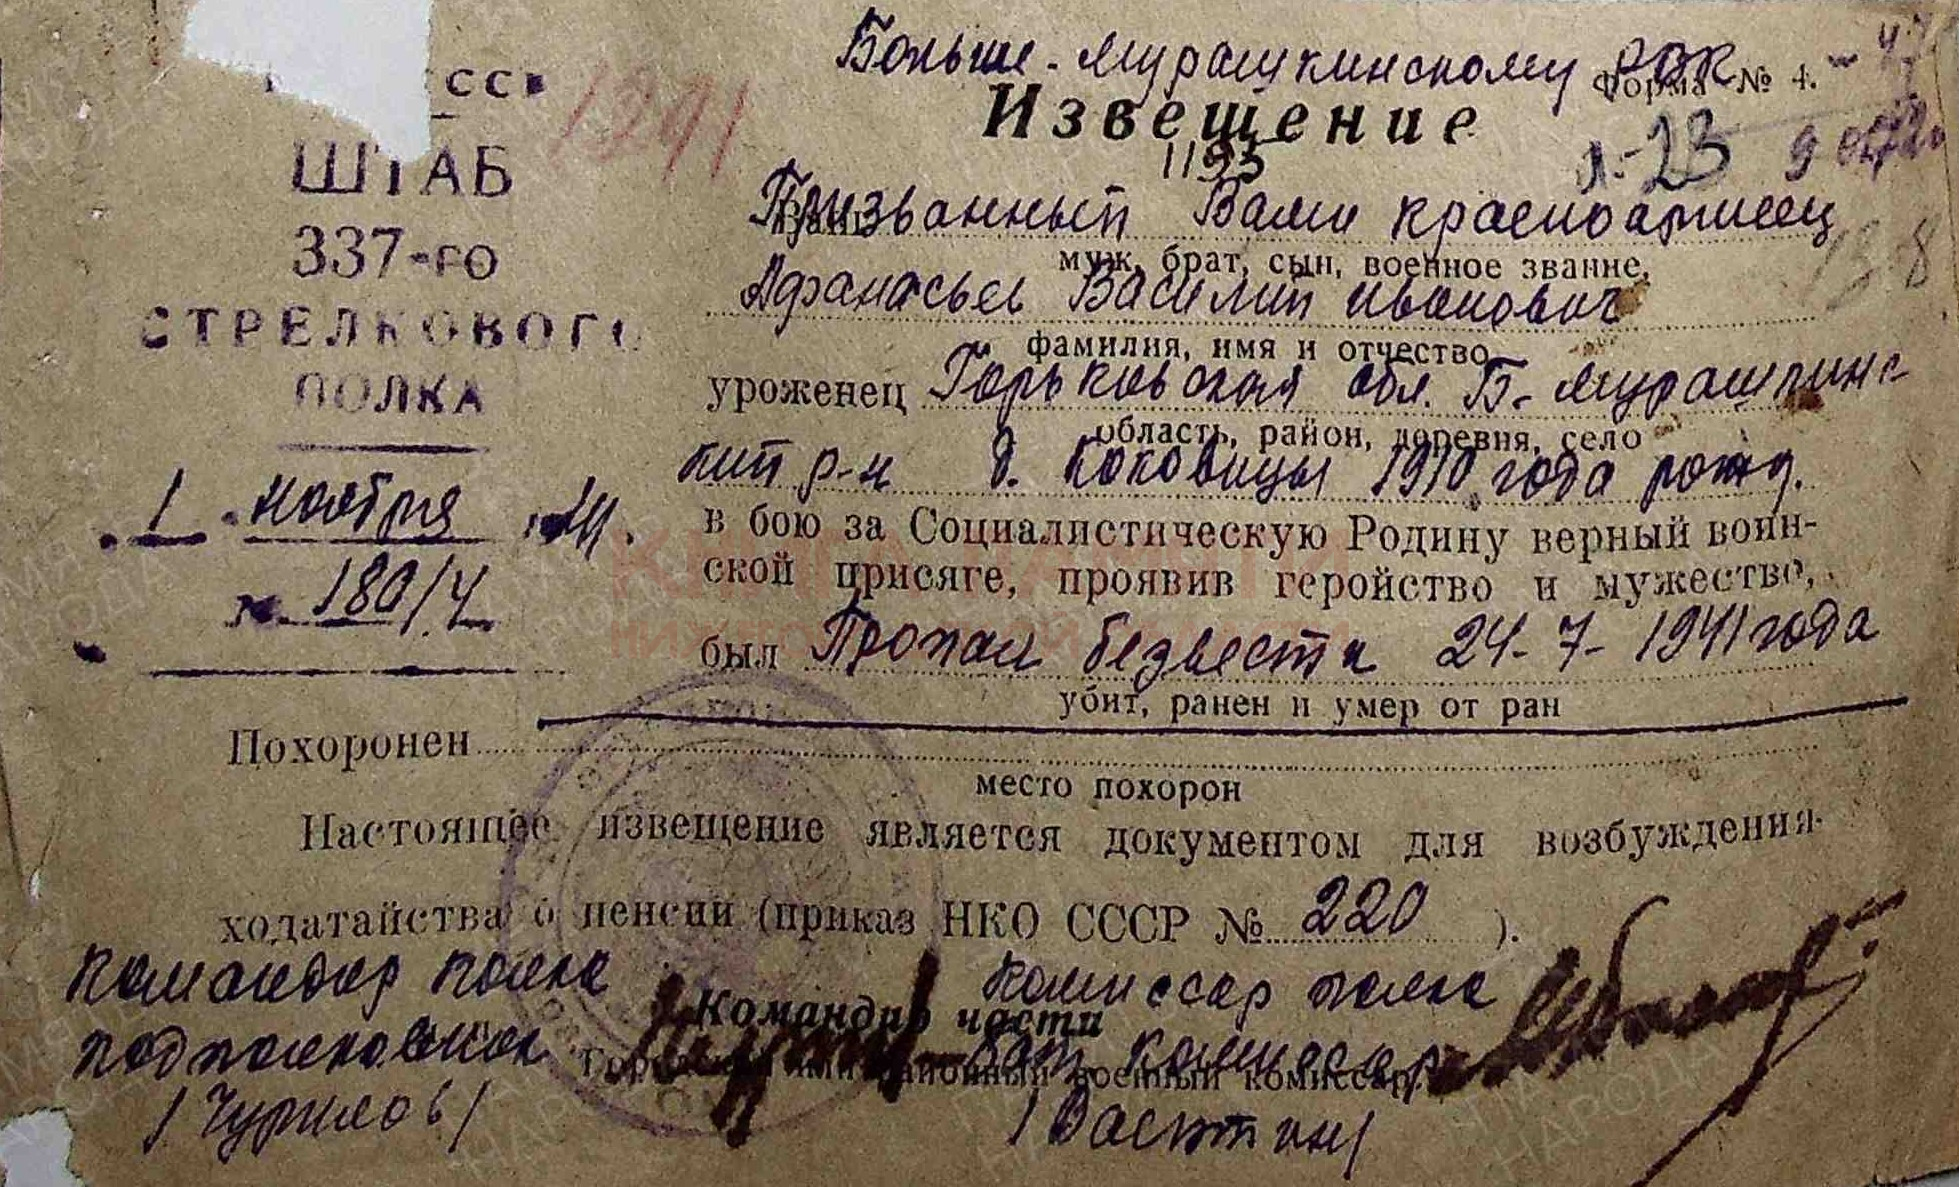 Больше-Мурашкинскому РВК
Форма № 4.
Извещение
1391
1193
л-23
ШТАБ
337-го
СТРЕЛКОВОГО
ПОЛКА
1 ноября 41.
№ 180/4
Призванный Вами красноармеец
муж, брат, сын, военное звание,
Афанасьев Василий Иванович
фамилия, имя и отчество
уроженец Горьковская обл. Б-Мурашкинс-
область, район, деревня, село
кий р-н д. Коковицы 1910 года рожд.
в бою за Социалистическую Родину верный воин-
ской присяге, проявив геройство и мужество,
был Пропал безвести 24-7-1941 года
убит, ранен и умер от ран
Похоронен
место похорон
Настоящее извещение является документом для возбуждения
ходатайства о пенсии (приказ НКО СССР № 220 ).
Командир полка
подполковник
/Чурилов/
Командир части
районный военный комиссар
Комиссар полка
бат. комиссар
КНИГА ПАМЯТИ
НИЖЕГОРОДСКОЙ ОБЛАСТИ
ПАМЯТЬ НАРОДА